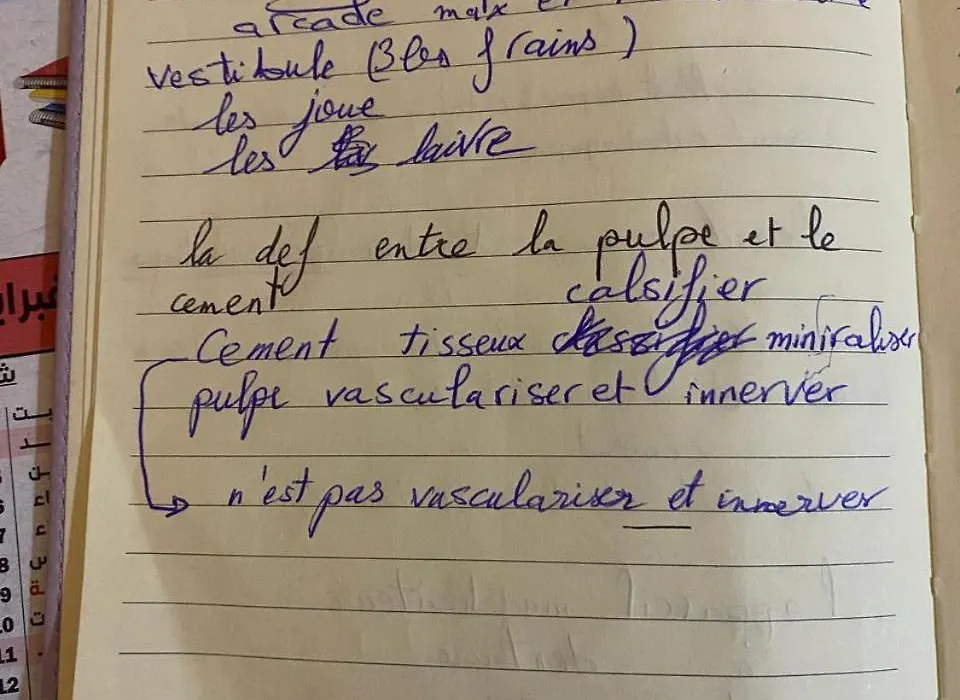 arcade max et
vestibule (3 les frains)
les joue
les laivre
la def entre la pulpe et le
cement
calsifier
Cement tisseux miniraliser
pulpe vasculariser et innerver
n'est pas vasculariser et innerver
فبراير
8
9
10
11
12